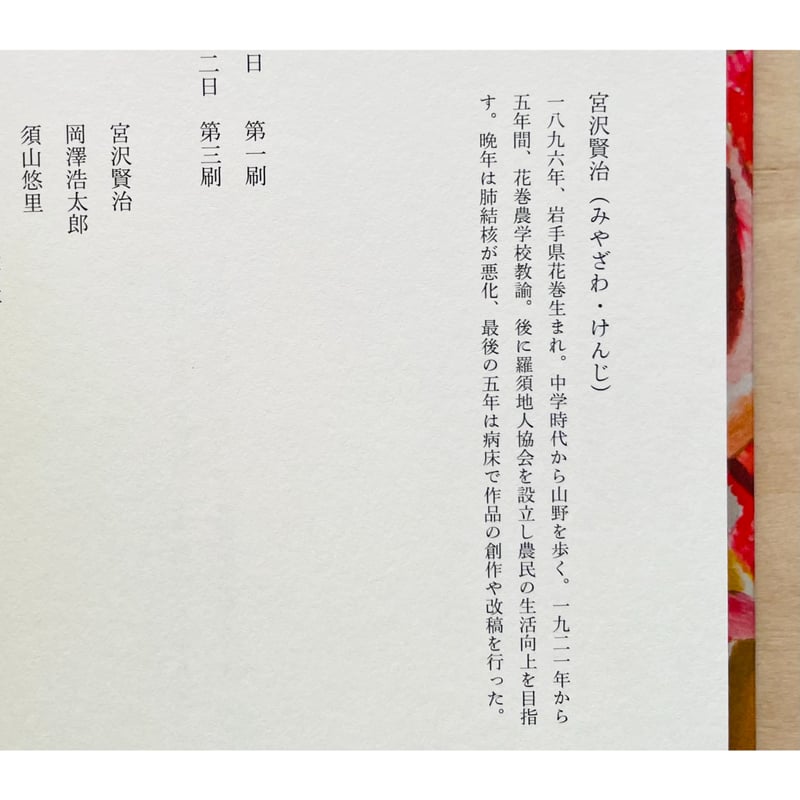 宮沢賢治（みやざわ・けんじ）
一八九六年、岩手県花巻生まれ。中学時代から山野を歩く。一九二一年から
五年間、花巻農学校教諭。後に羅須地人協会を設立し農民の生活向上を目指
す。晩年は肺結核が悪化、最後の五年は病床で作品の創作や改稿を行った。
日　第一刷
二日　第三刷
宮沢賢治
岡澤浩太郎
須山悠里